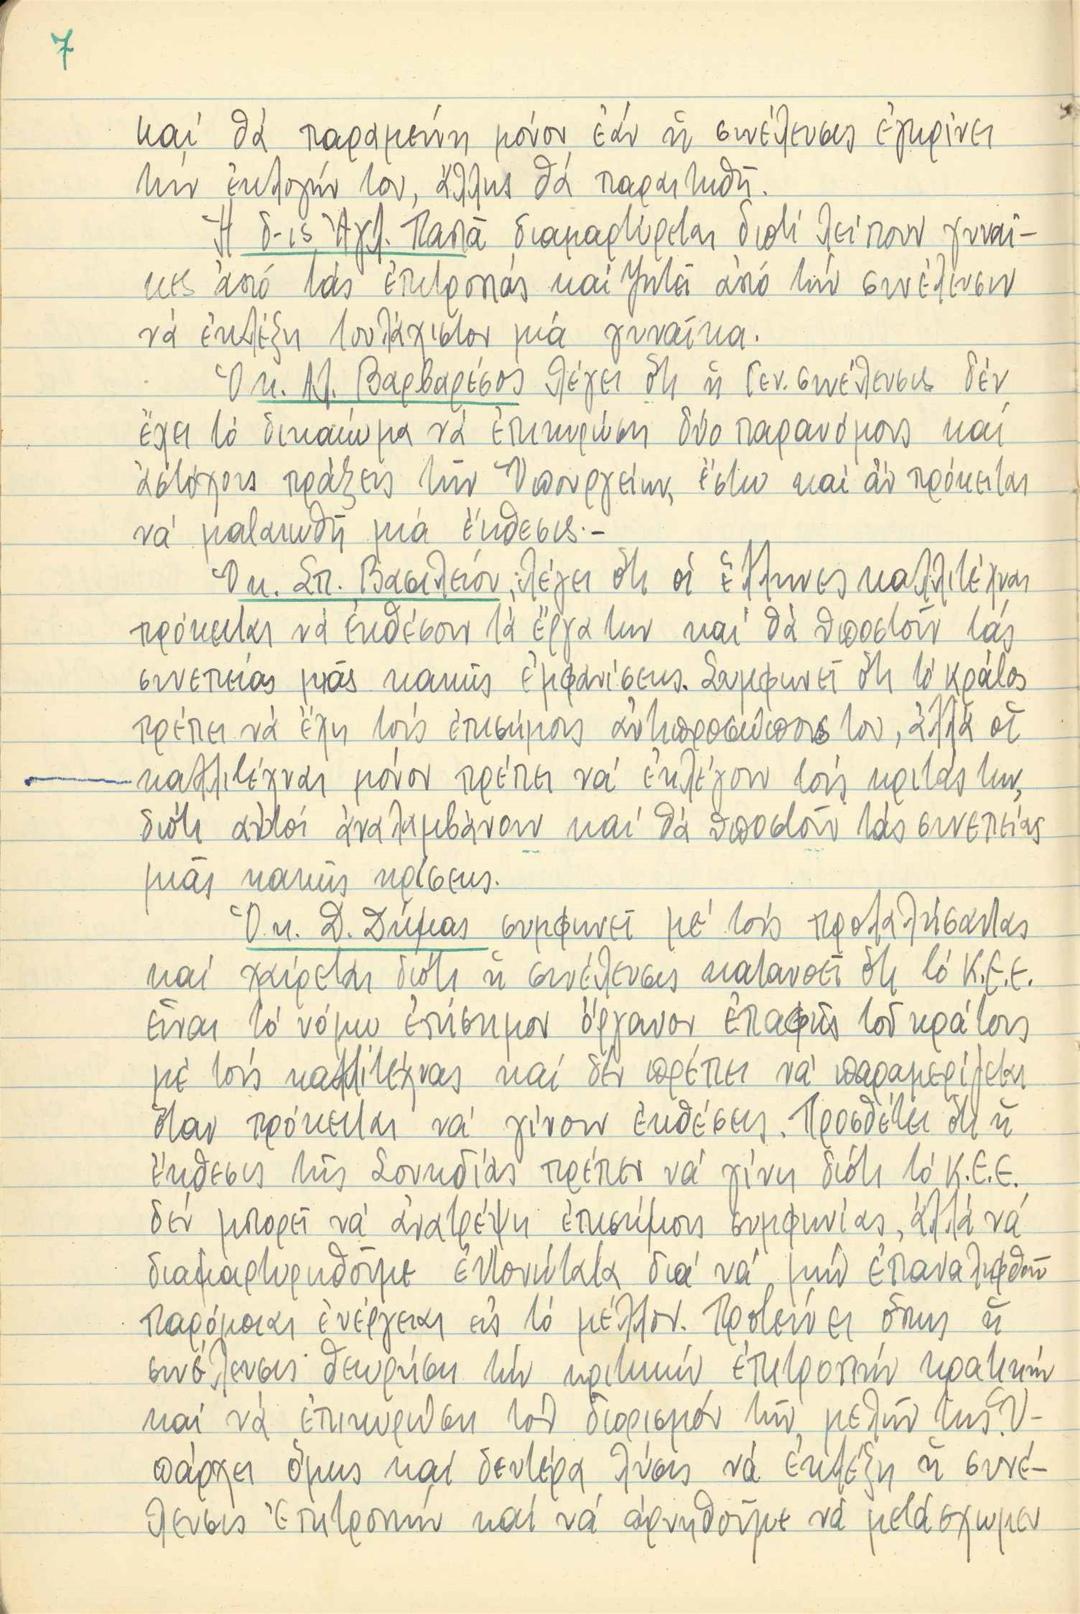 7
καί θά παραμείνη μόνον ἐάν ἡ συνέλευσις ἐγκρίνει
τήν ἐκλογήν του, ἄλλως θά παραιτηθῆ.
Ἡ δ-ις Ἀγλ. Παπᾶ διαμαρτύρεται διότι λείπουν γυναῖ-
κες ἀπό τάς ἐπιτροπάς καί ζητεῖ ἀπό τήν συνέλευσιν
νά ἐκλέξη τουλάχιστον μιά γυναῖκα.
Ὁ κ. Ἀλ. Βαρβαρέσος λέγει ὅτι ἡ Γεν. συνέλευσις δέν
ἔχει τό δικαίωμα νά ἐπικυρώση δύο παρανόμους καί
ἀστόχους πράξεις τῶν Ὑπουργείων, ἔστω καί ἄν πρόκειται
νά ματαιωθῆ μιά ἔκθεσις.-
Ὁ κ. Σπ. Βασιλείου, λέγει ὅτι οἱ ἕλληνες καλλιτέχναι
πρόκειται νά ἐκθέσουν τά ἔργα των καί θά ὑποστοῦν τάς
συνεπείας μιᾶς κακῆς ἐμφανίσεως. Συμφωνεῖ ὅτι τό κράτος
πρέπει νά ἔχη τούς ἐπισήμους ἀντιπροσώπους του, ἀλλά οἱ
καλλιτέχναι μόνον πρέπει νά ἐκλέγουν τούς κριτάς των,
διότι αὐτοί ἀναλαμβάνουν καί θά ὑποστοῦν τάς συνεπείας
μιᾶς κακῆς κρίσεως.
Ὁ κ. Δ. Δήμας συμφωνεῖ μέ τούς προλαλήσαντας
καί χαίρεται διότι ἡ συνέλευσις κατανοεῖ ὅτι τό Κ.Ε.Ε.
εἶναι τό νόμω ἐπίσημον ὄργανον ἐπαφῆς τοῦ κράτους
μέ τούς καλλιτέχνας καί δέν πρέπει νά παραμερίζεται
ὅταν πρόκειται νά γίνουν ἐκθέσεις. Προσθέτει ὅτι ἡ
ἔκθεσις τῆς Σουηδίας πρέπει νά γίνη διότι τό Κ.Ε.Ε.
δέν μπορεῖ νά ἀνατρέψη ἐπισήμους συμφωνίας, ἀλλά νά
διαμαρτυρηθοῦμε ἐντονώτατα διά νά μήν ἐπαναληφθοῦν
παρόμοιαι ἐνέργειαι εἰς τό μέλλον. Προτείνει ὅπως ἡ
συνέλευσις θεωρήση τήν κριτικήν ἐπιτροπήν κρατικήν
καί νά ἐπικυρώση τόν διορισμόν τῶν μελῶν της. Ὑ-
πάρχει ὅμως καί δευτέρα λύσις νά ἐκλέξη ἡ συνέ-
λευσις Ἐπιτροπήν καί νά ἀρνηθοῦμε νά μετάσχωμεν